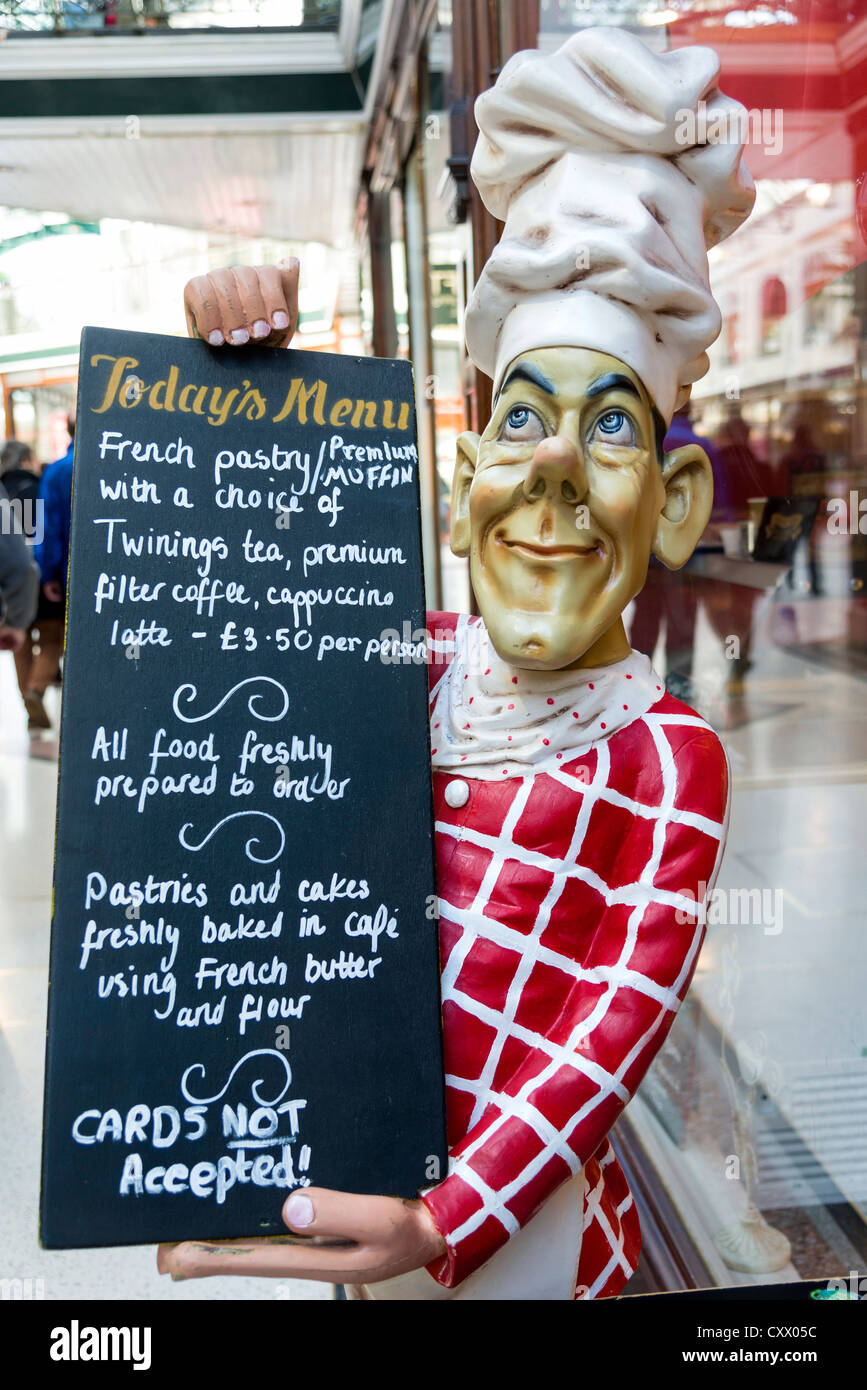 Today's Menu
French pastry/Premium MUFFIN
with a choice of
Twinings tea, premium
filter coffee, cappuccino
latte - £3.50 per person
All food freshly
prepared to order
Pastries and cakes
freshly baked in café
using French butter
and flour
CARDS NOT
Accepted!!
alamy
Image ID: CXX05C
www.alamy.com